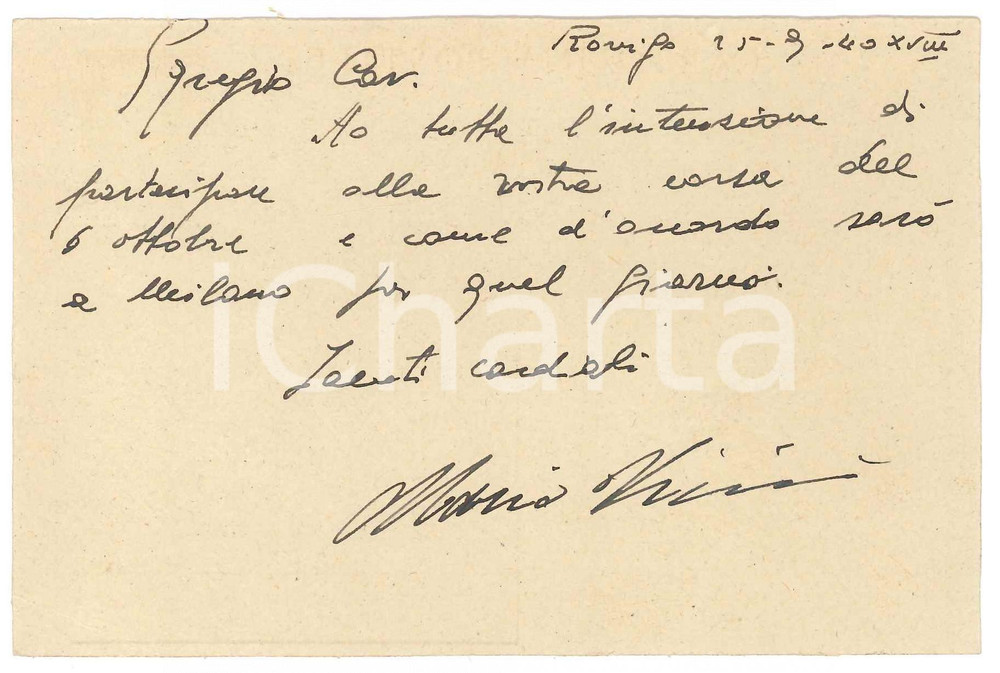 Rovigo 25-9-40 XVIII
Egregio Cav.
Ho tutta l'intenzione di
partecipare alla vostra corsa del
6 ottobre e come d'accordo sarò
a Milano per quel giorno.
Saluti cordiali
Mario Vicini
ICharta